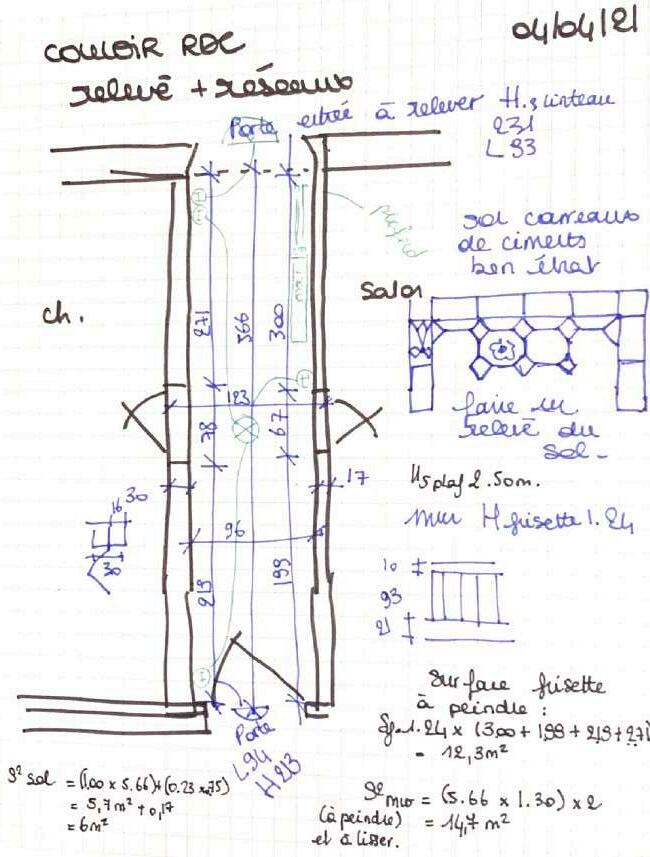 04/04/21
COULOIR RDC
relevé + réseaux
Porte entrée à relever H. s linteau
231
L 93
plafond
sol carreaux
de ciments
bon état
Salon
ch.
271
566
300
123
78
67
faire un
relevé du
sol -
30
17
Hs plaf 2.50m.
mur H frisette 1.24
16
30
96
219
199
10
93
21
Surface frisette
à peindre :
1.24 x (300 + 199 + 219 + 271)
= 12,3m²
Porte
L94
H 213
S² sol = (1.00 x 5.66)+(0.23 x 0.75)
= 5,7m² + 0,17
= 6m²
S² mur = (5.66 x 1.30) x 2
(à peindre) = 14,7 m²
et à lisser.